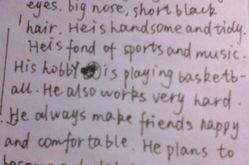 eyes. big nose, short black
hair. He is handsome and tidy.
He is fond of sports and music.
His hobby is playing basketb-
all. He also works very hard.
He always make friends happy
and comfortable. He plans to